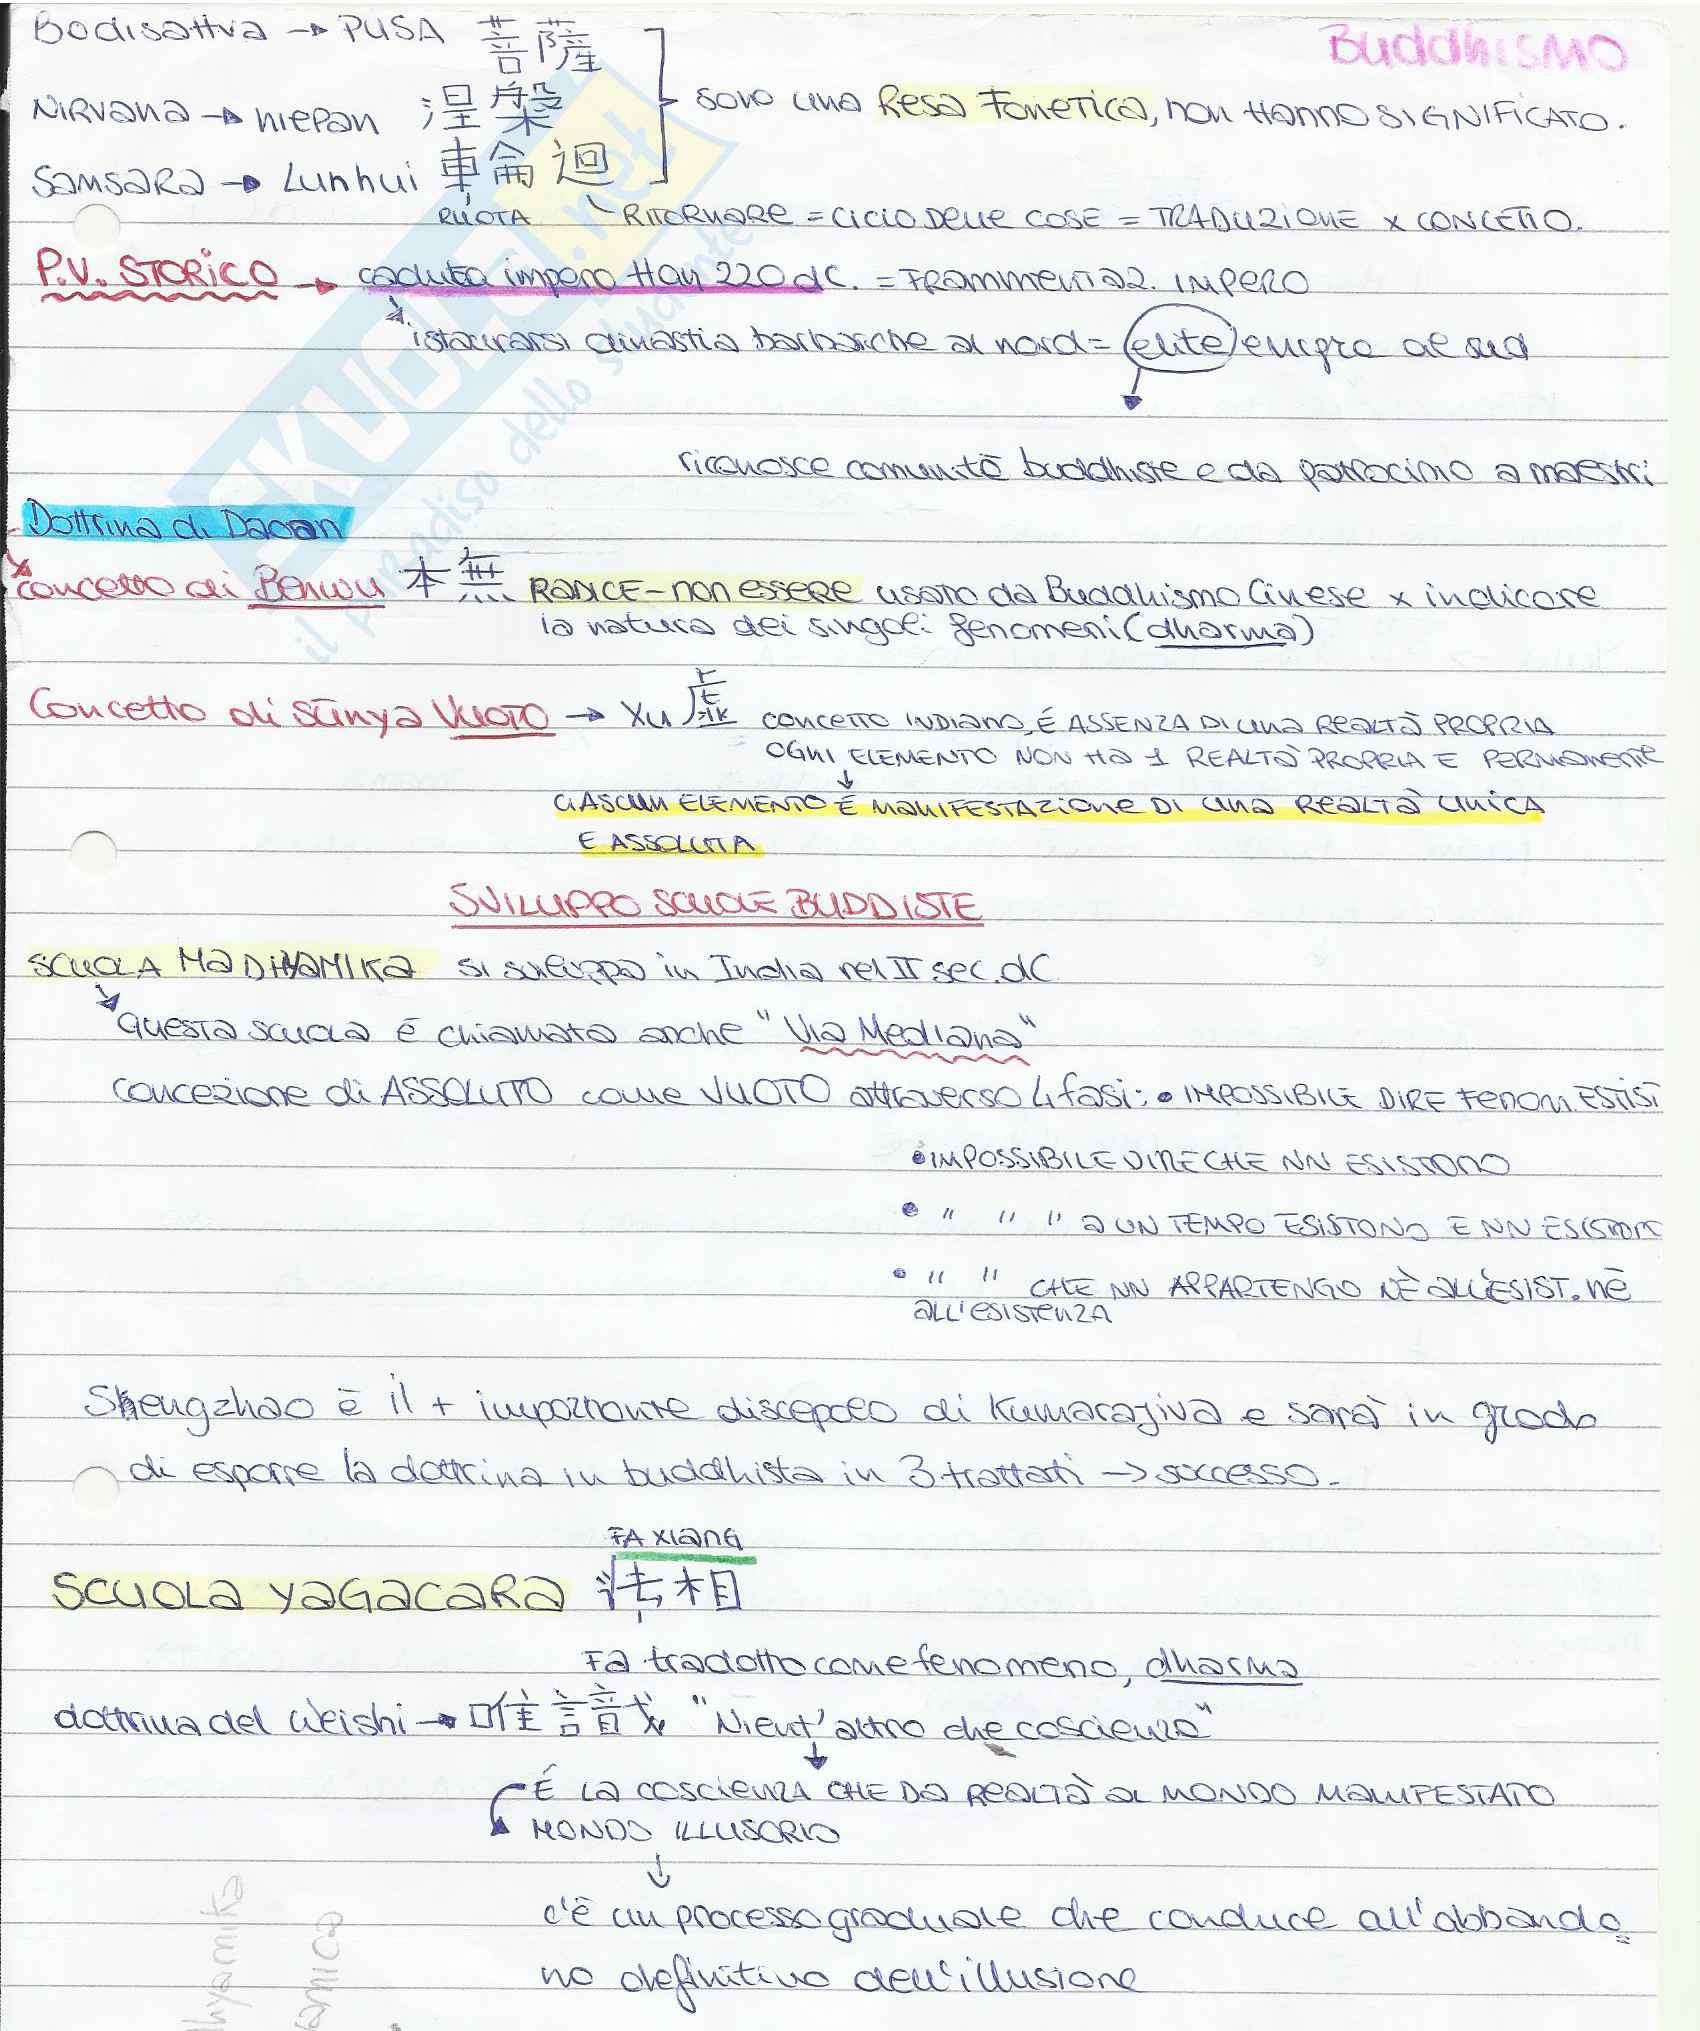 Buddhismo
Bodisattva → PUSA 菩薩
NIRVana → niepan 涅槃 sono una Resa Fonetica, non Hanno SIGNIFICATO.
SamSaRa → Lunhui 車侖迴
RUOTA RITORNARE = CICLO Delle COSE = TRADUZIONE x CONCETTO.
P.V. STORICO → caduta impero Han 220 dC. = Frammentaz. IMPERO
istaurarsi dinastia barbariche al nord = elite emigra al sud
riconosce comunità buddhiste e da patrocinio a maestri
Dottrina di Daoan
concetto di Benwu 本無 RADICE - non essere usato da Buddhismo Cinese x indicare
la natura dei singoli fenomeni (dharma)
Concetto di Sūnya VUOTO → Xu 虛 concetto INDIANO, É ASSENZA DI UNA REALTÀ PROPRIA
OGNI ELEMENTO NON HA 1 REALTÀ PROPRIA E PERMANENTE
CIASCUN ELEMENTO É MANIFESTAZIONE DI UNA REALTÀ UNICA
E ASSOLUTA
SVILUPPO SCUOLE BUDDISTE
SCUOLA MADHYAMIKA si sviluppa in India nel II sec. dC
Questa scuola é chiamata anche "Via Mediana"
concezione di ASSOLUTO come VUOTO attraverso 4 fasi: • IMPOSSIBILE DIRE Fenom. ESTIST
• IMPOSSIBILE DIRE CHE NN ESISTONO
• " " " a UN TEMPO ESISTONO E NN ESISTONO
• " " CHE NN APPARTENGO NÈ all'ESIST. NÈ
all'esistenza
Shengzhao è il + importante discepolo di Kumarajiva e sarà in grado
di esporre la dottrina in buddhista in 3 trattati → successo.
Fa xiang
SCUOLA YAGACARA 法相
Fa tradotto come fenomeno, dharma
dottrina del Weishi → 唯識 "Nient'altro che coscienza"
É LA COSCIENZA CHE DA REALTÀ AL MONDO MANIFESTATO
MONDO ILLUSORIO
c'è un processo graduale che conduce all'abbando
no definitivo dell'illusione
SKUOLA.net
il paradiso dello studente